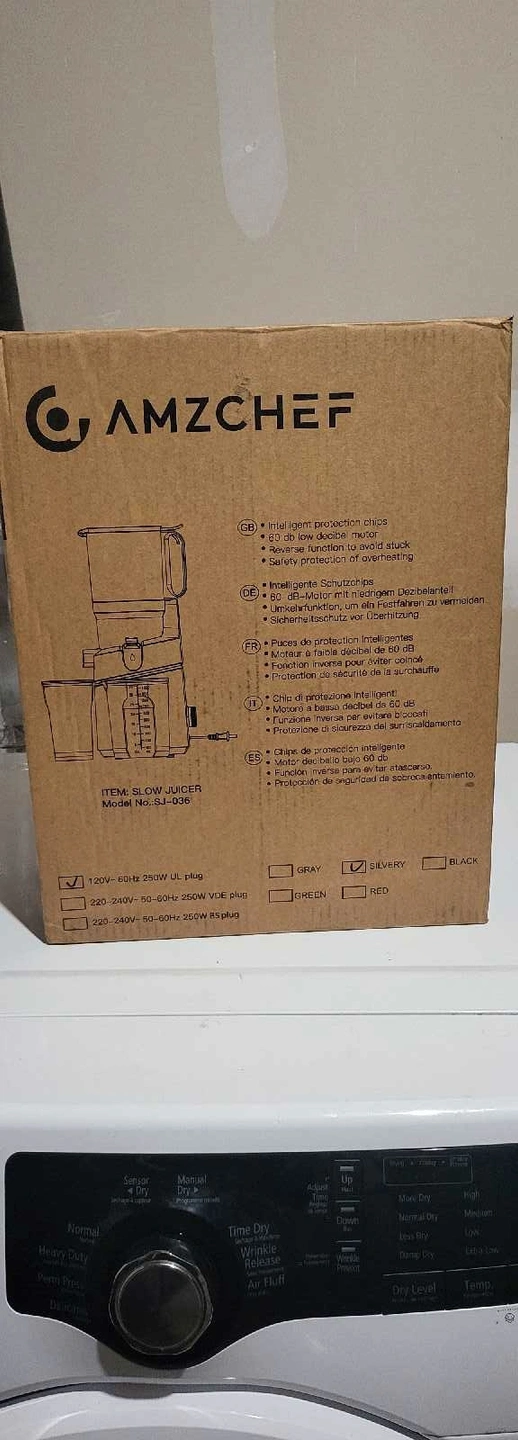 AMZCHEF
GB
• Intelligent protection chips
• 60 db low decibel motor
• Reverse function to avoid stuck
• Safety protection of overheating
DE
• Intelligente Schutzchips
• 60 dB-Motor mit niedrigem Dezibelanteil
• Umkehrfunktion, um ein Festfahren zu vermeiden
• Sicherheitsschutz vor Überhitzung
FR
• Puces de protection intelligentes
• Moteur à faible décibel de 60 dB
• Fonction inverse pour éviter coincé
• Protection de sécurité de la surchauffe
IT
• Chip di protezione intelligenti
• Motore a bassa decibel da 60 dB
• Funzione inversa per evitare bloccati
• Protezione di sicurezza del surriscaldamento
ES
• Chips de protección inteligente
• Motor decibelio bajo 60 db
• Función inversa para evitar atascarse.
• Protección de seguridad de sobrecalentamiento.
ITEM: SLOW JUICER
Model No.:SJ-036
120V~ 60Hz 250W UL plug
220-240V~ 50-60Hz 250W VDE plug
220-240V~ 50-60Hz 250W BS plug
GRAY
SILVERY
BLACK
GREEN
RED
Sensor
◄ Dry
Manual
Dry ►
Normal
Heavy Duty
Perm Press
Time Dry
Wrinkle
Release
Air Fluff
Adjust
Time
Up
Down
Wrinkle
Prevent
More Dry
Normal Dry
Less Dry
Damp Dry
High
Medium
Low
Extra Low
Dry Level
Temp.